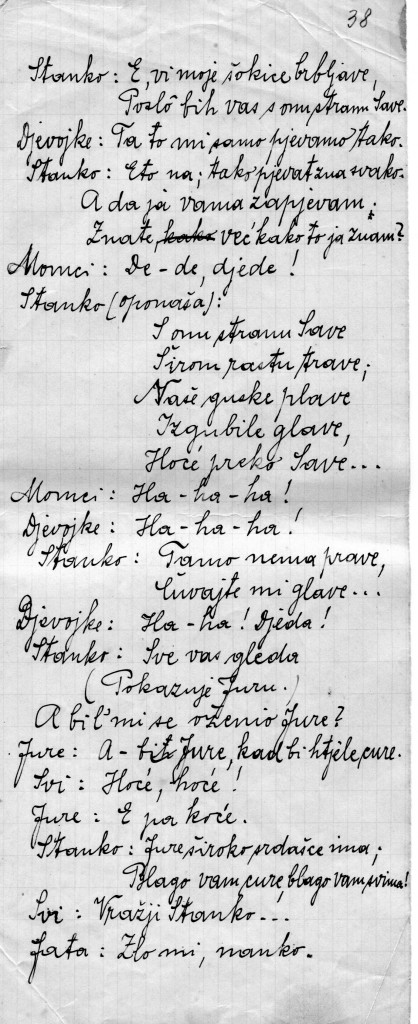 38
Stanko: E, vi moje šokice brbljave,
Poslô bih vas s onu stranu Save.
Djevojke: Ta to mi samo pjevamo tako.
Stanko: Eto na; tako pjevat zna svako.
A da ja vama zapjevam;
Znate, kako već kako to ja znam?
Momci: De-de, djede!
Stanko (oponaša):
S onu stranu Save
Širom rastu trave;
Naše guske plave
Izgubile glave,
Hoće preko Save...
Momci: Ha-ha-ha!
Djevojke: Ha-ha-ha!
Stanko: Tamo nema prave,
Čuvajte mi glave...
Djevojke: Ha-ha! Djeda!
Stanko: Sve vas gleda
(Pokazuje Juru.)
A bil' mi se oženio Jure?
Jure: A-bit Jure, kad bi htjele cure.
Svi: Hoće, hoće!
Jure: E pa hoće.
Stanko: Jure široko srdašce ima;
Blago vam cure, blago vam svima!
Svi: Vražji Stanko...
Jata: Zlo mi, nanko.